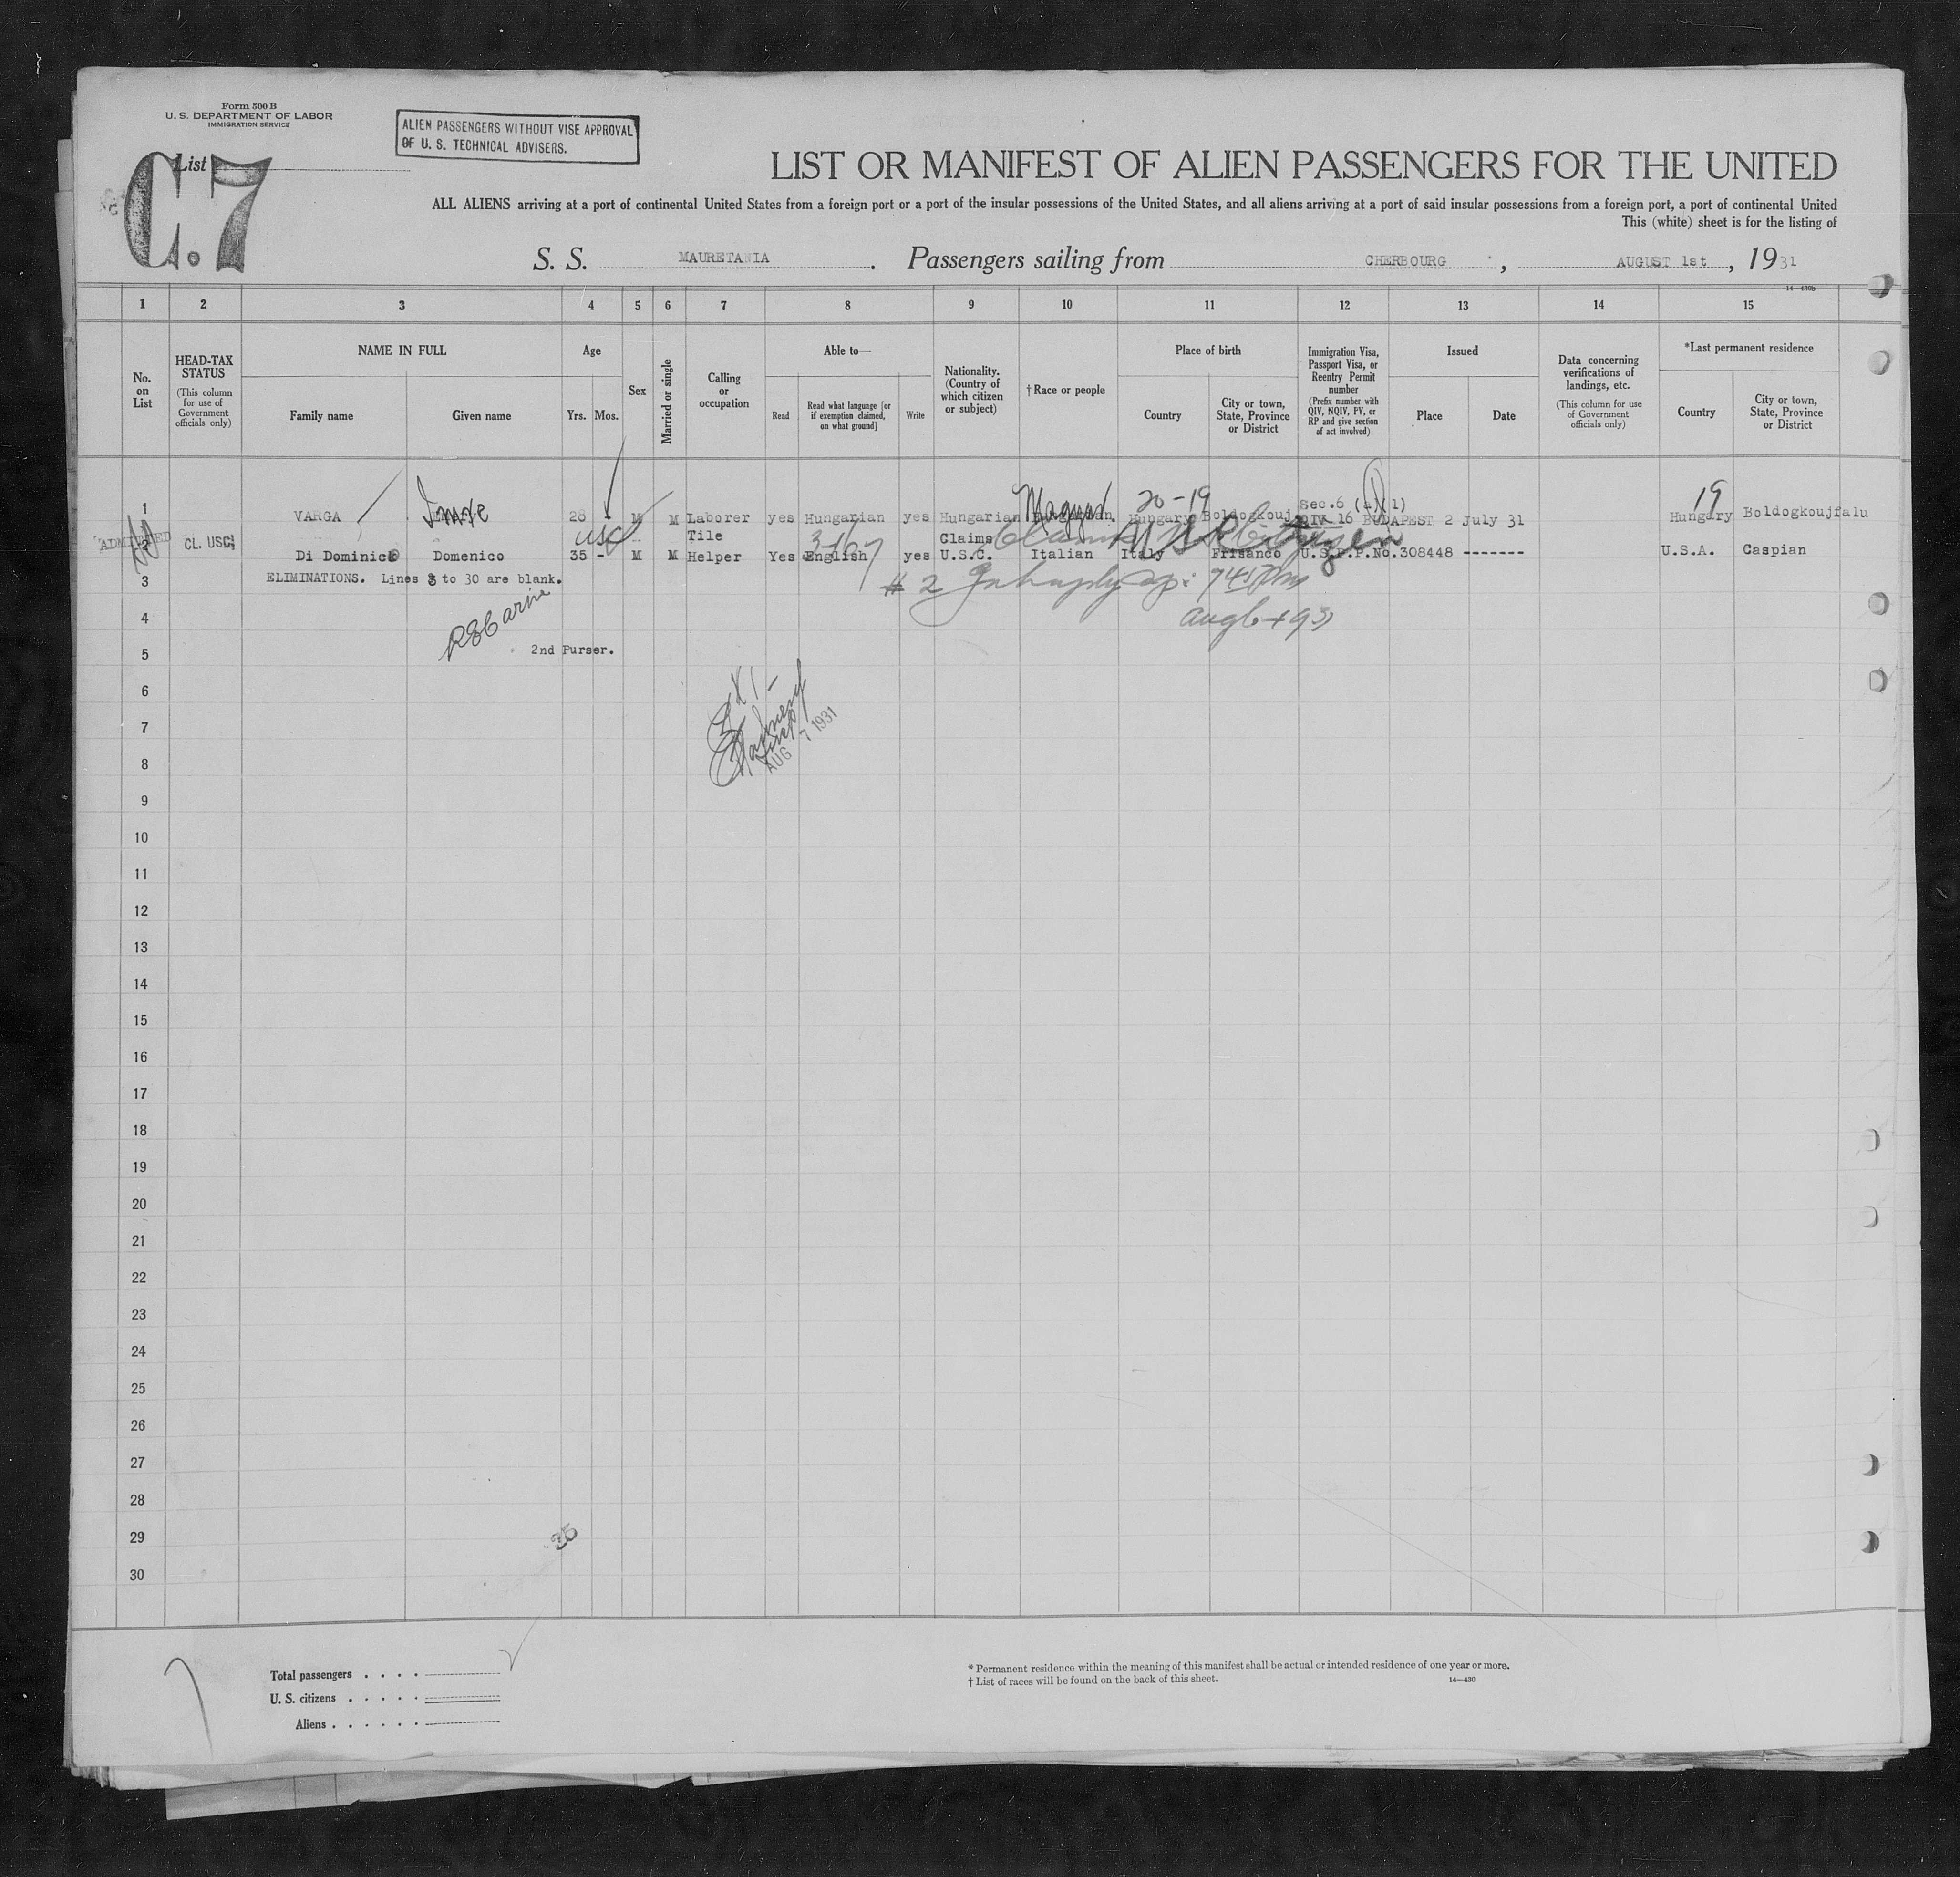 Form 500 B
U. S. DEPARTMENT OF LABOR
IMMIGRATION SERVICE
ALIEN PASSENGERS WITHOUT VISE APPROVAL
OF U. S. TECHNICAL ADVISERS.
List
C.7
LIST OR MANIFEST OF ALIEN PASSENGERS FOR THE UNITED
ALL ALIENS arriving at a port of continental United States from a foreign port or a port of the insular possessions of the United States, and all aliens arriving at a port of said insular possessions from a foreign port, a port of continental United
This (white) sheet is for the listing of
S. S. MAURETANIA. Passengers sailing from CHERBOURG, AUGUST 1st, 1931
14—430b
1 2 3 4 5 6 7 8 9 10 11 12 13 14 15
No. on List
HEAD-TAX STATUS
(This column for use of Government officials only)
NAME IN FULL
Family name
Given name
Age
Yrs.
Mos.
Sex
Married or single
Calling or occupation
Able to—
Read
Read what language [or if exemption claimed, on what ground]
Write
Nationality. (Country of which citizen or subject)
† Race or people
Place of birth
Country
City or town, State, Province or District
Immigration Visa, Passport Visa, or Reentry Permit number
(Prefix number with QIV, NQIV, PV, or RP and give section of act involved)
Issued
Place
Date
Data concerning verifications of landings, etc.
(This column for use of Government officials only)
*Last permanent residence
Country
City or town, State, Province or District
20-19
19
Sec.6 (a)(1)
1 VARGA Imre 28 - M M Laborer yes Hungarian yes Hungarian Magyar Hungary Boldogkouj QIV 16 BUDAPEST 2 July 31 Hungary Boldogkoujfalu
ADMITTED
USC
Tile
3-167
Claims
Claims U S Citizen
2 CL. USC. Di Dominico Domenico 35 - M M Helper Yes English yes U.S.C. Italian Italy Frisanco U.S.P.P.No.308448 ------- U.S.A. Caspian
3 ELIMINATIONS. Lines 3 to 30 are blank.
# 2
4
Aug 6 - 1931
5
2nd Purser.
6
7
AUG 7 1931
8
9
10
11
12
13
14
15
16
17
18
19
20
21
22
23
24
25
26
27
28
29
35
30
Total passengers . . . .
U. S. citizens . . . . .
Aliens . . . . . .
* Permanent residence within the meaning of this manifest shall be actual or intended residence of one year or more.
† List of races will be found on the back of this sheet.
14—430